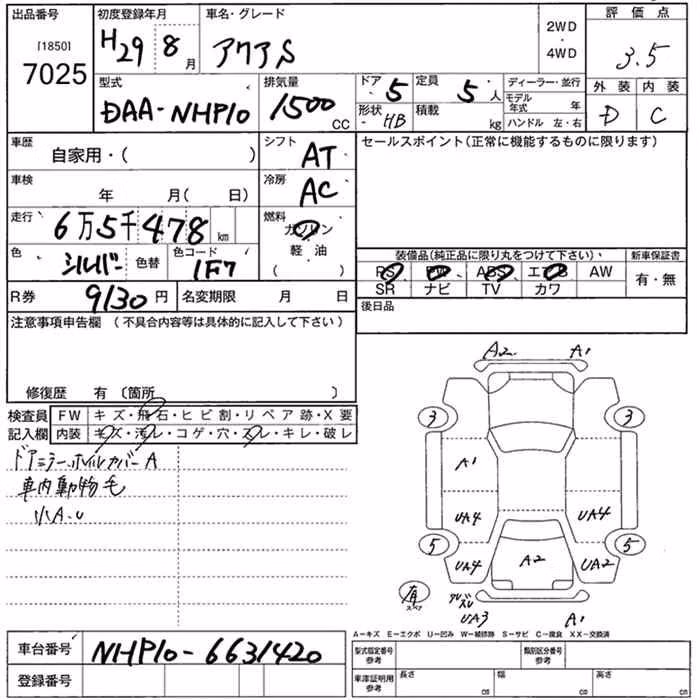 出品番号 初度登録年月 車名・グレード 2WD・4WD 評価点
[1850]
7025 H29 8月 アクアS 3.5
型式 排気量 ドア 5 定員 5人 ディーラー・並行 外装 内装
DAA-NHP10 1500CC 形状 HB 積載 kg モデル年式 年 D C
ハンドル 左・右
車歴 自家用・( ) シフト AT セールスポイント(正常に機能するものに限ります)
車検 年 月( 日) 冷房 AC
走行 6万5千478km 燃料 ガソリン
軽・油
( )
色 シルバー 色替 色コード 1F7 装備品(純正品に限り丸をつけて下さい) 新車保証書
PS PW ABS エアB AW 有・無
SR ナビ TV カワ
R券 9130円 名変期限 月 日 後日品
注意事項申告欄 (不具合内容等は具体的に記入して下さい)
修復歴 有 (箇所 )
検査員 FW キズ・飛石・ヒビ割・リペア跡・X要
記入欄 内装 キズ・汚レ・コゲ・穴・スレ・キレ・破レ
ドアミラー.ホイルカバーA
車内動物毛
小A.U
A2 A1
3 3
A1
UA4 UA4
5 5
UA4 A2 UA2
有 スペア
UA3 A1
A-キズ E-エクボ U-凹ミ W-補修跡 S-サビ C-腐食 XX-交換済
車台番号 NHP10-6631420 型式指定番号 参考 類別区分番号 参考
登録番号 車庫証明用 参考 長さ cm 幅 cm 高さ cm